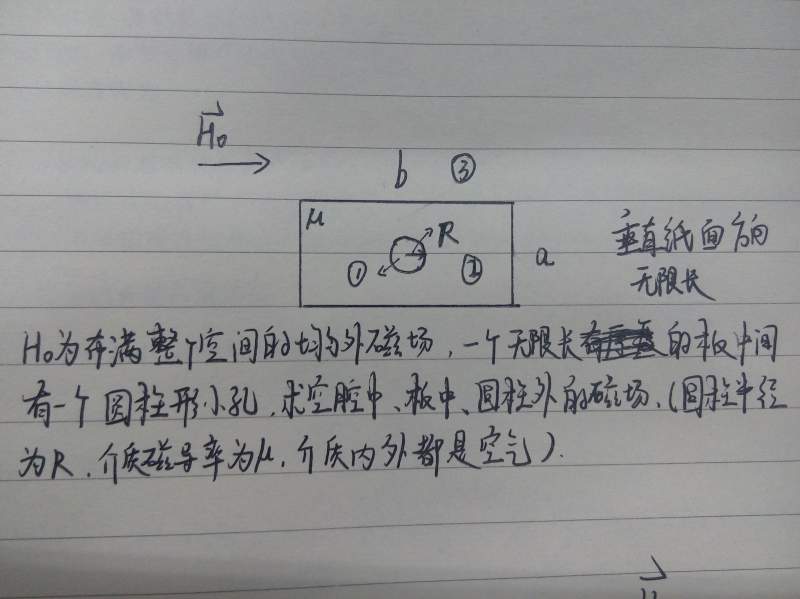 H₀
b ③
μ
R
① ② a
垂直纸面方向
无限长
H₀为充满整个空间的均匀外磁场,一个无限长的板中间
有一个圆柱形小孔,求空腔中、板中、圆柱外的磁场.(圆柱半径
为R,介质磁导率为μ,介质内外都是空气).